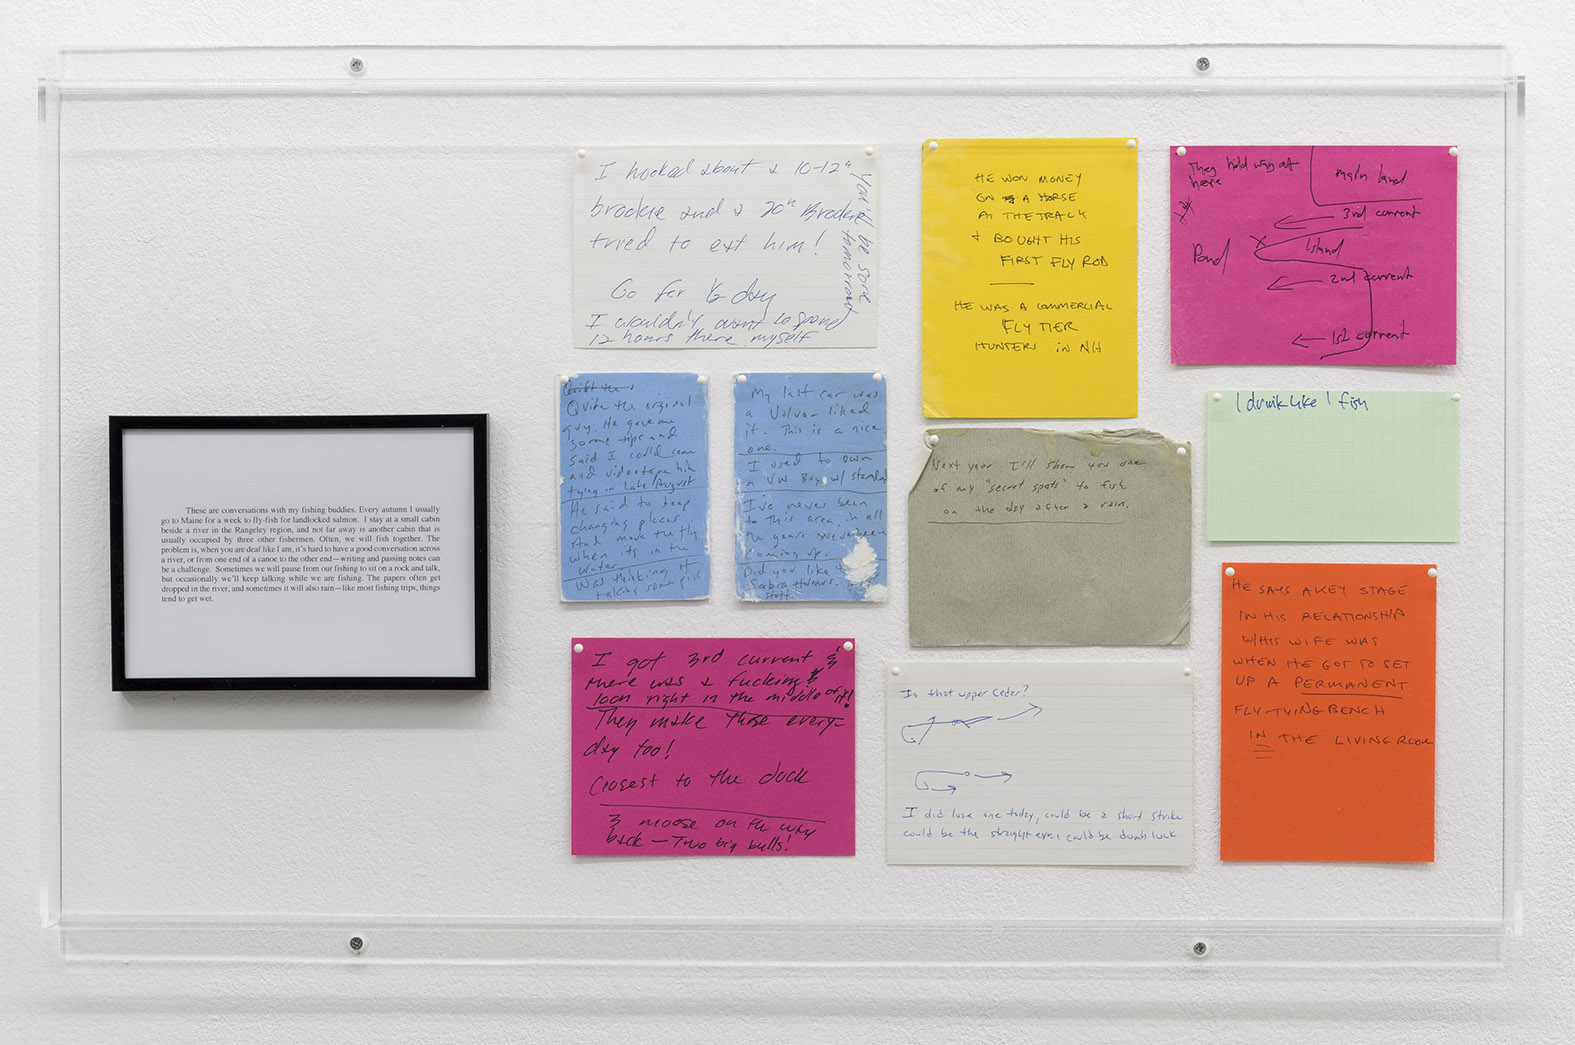 These are conversations with my fishing buddies. Every autumn I usually
go to Maine for a week to fly-fish for landlocked salmon. I stay at a small cabin
beside a river in the Rangeley region, and not far away is another cabin that is
usually occupied by three other fishermen. Often, we will fish together. The
problem is, when you are deaf like I am, it's hard to have a good conversation across
a river, or from one end of a canoe to the other end—writing and passing notes can
be a challenge. Sometimes we will pause from our fishing to sit on a rock and talk,
but occasionally we'll keep talking while we are fishing. The papers often get
dropped in the river, and sometimes it will also rain—like most fishing trips, things
tend to get wet.
I hooked about a 10-12"
brookie and a 20" Brookie
tried to eat him!
Go for ½ day
I wouldn't want to spend
12 hours there myself
You'll be sore
tomorrow
HE WON MONEY
ON A HORSE
AT THE TRACK
+ BOUGHT HIS
FIRST FLY ROD
HE WAS A COMMERCIAL
FLY TIER
HUNTERS IN NH
They hold way at
here
main land
3rd current
X
Island
Pond
2nd current
1st current
Quite the original
guy. He gave me
some tips and
said I could come
and videotape him
tying in late August
He said to keep
changing places
And move the fly
when its in the
water.
Was thinking of
taking some pics
My last car was
a Volvo - liked
it. This is a nice
one.
I used to own
a VW Bug w/ standard
I've never been
to this area in all
the years we've been
coming up.
Did you like
Sabra Humus.
stuff
Next year I'll show you one
of my "secret spots" to fish
on the day after a rain.
I drink like I fish
I got 3rd current &
there was a fucking
loon right in the middle of it!
They make those every-
day too!
Closest to the dock
3 moose on the way
back - Two big bulls!
In that upper Cedar?
I did lose one today, could be a short strike
could be the straight eye, could be dumb luck
HE SAYS A KEY STAGE
IN HIS RELATIONSHIP
W/HIS WIFE WAS
WHEN HE GOT TO SET
UP A PERMANENT
FLY-TYING BENCH
IN THE LIVING ROOM